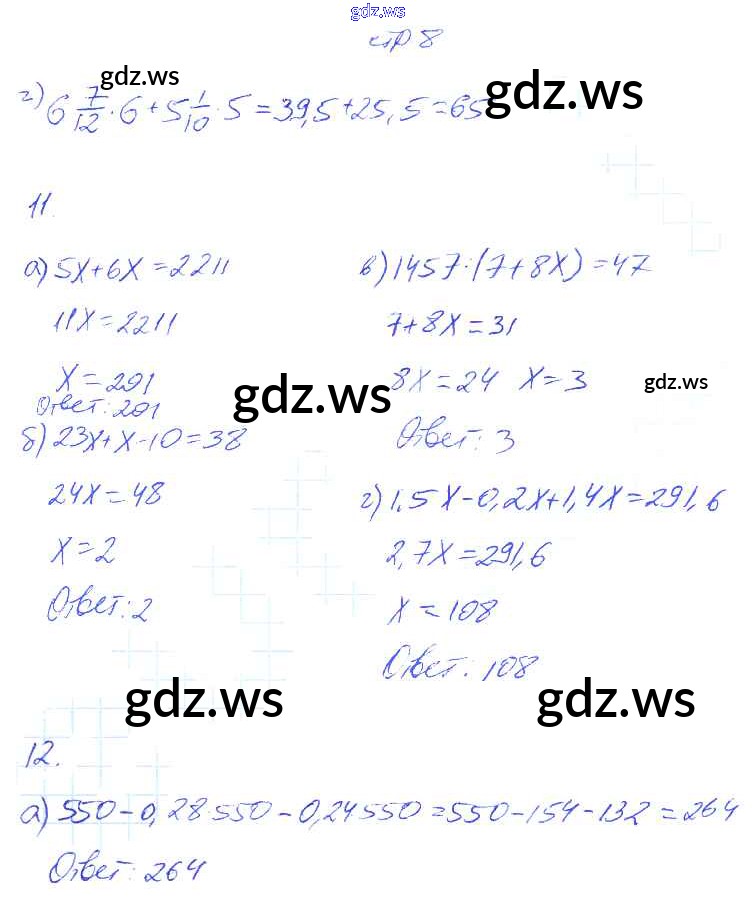 gdz.ws
стр 8
gdz.ws
gdz.ws
г) 6 7/12 · 6 + 5 1/10 · 5 = 39,5 + 25,5 = 65
11.
а) 5x + 6x = 2211
11x = 2211
x = 201
Ответ: 201
б) 23x + x - 10 = 38
24x = 48
x = 2
Ответ: 2
в) 1457 : (7 + 8x) = 47
7 + 8x = 31
8x = 24 x = 3
Ответ: 3
г) 1,5x - 0,2x + 1,4x = 291,6
2,7x = 291,6
x = 108
Ответ: 108
gdz.ws
gdz.ws
gdz.ws
gdz.ws
12.
а) 550 - 0,28·550 - 0,24·550 = 550 - 154 - 132 = 264
Ответ: 264